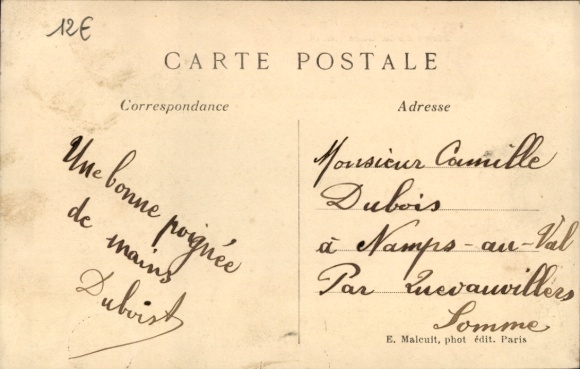 12€
CARTE POSTALE
Correspondance
Adresse
Une bonne poignée
de mains
Duboist
Monsieur Camille
Dubois
à Namps-au-Val
Par Quevauvillers
Somme
E. Malcuit, phot édit. Paris